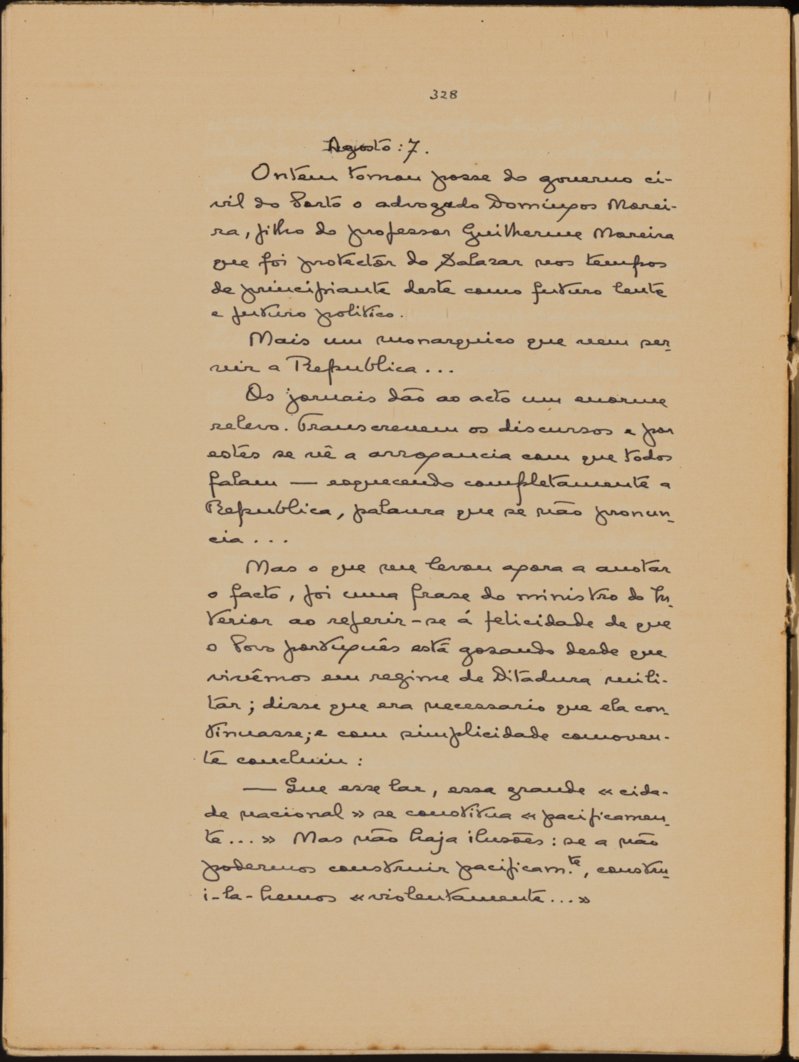 328
Agosto: 7.
Ontem tomou posse do governo ci-
vil do Porto o advogado Domingos Morei-
ra, filho do professor Guilherme Moreira
que foi protectôr do Salazar nos tempos
de principiante deste como futuro lente
e futuro politico.
Mais um monarquico que vem ser-
vir a Republica...
Os jornais dão ao acto um enorme
relevo. Transcrevem os discursos e por
estes se vê a arrogancia com que todos
falam — esquecendo completamente a
Republica, palavra que se não pronun-
cia...
Mas o que me levou agora a anotar
o facto, foi uma frase do ministro do In-
terior ao referir-se á felicidade de que
o Povo português está gosando desde que
vivêmos em regime de Ditadura mili-
tar; disse que era necessario que ela con-
tinuasse; e com simplicidade comoven-
te concluiu:
— Que esse lar, essa grande «cida-
de nacional» se constitua «pacificamen-
te...» Mas não haja ilusões: se a não
podermos construir pacificam.te, constru-
i-la-hemos «violentamente...»